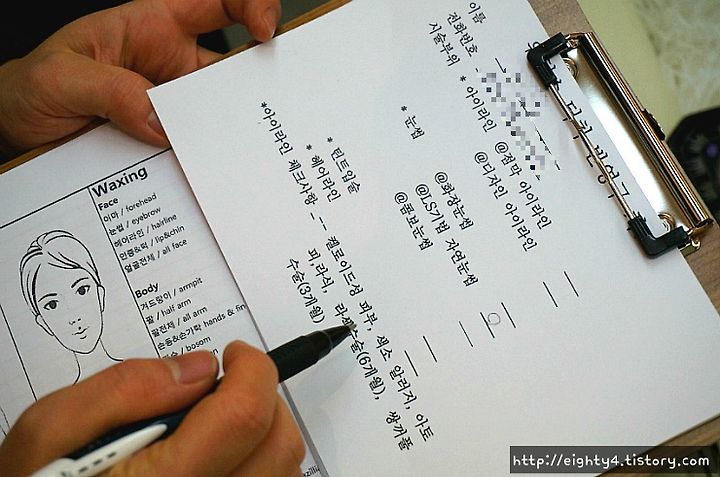 이름
전화번호 -
시술부위 * 아이라인 @점막 아이라인
@디자인 아이라인
* 눈썹 @화장눈썹
@LS기법 자연눈썹
@콤보눈썹
* 틴트입술
* 헤어라인
*아이라인 체크사항 - 켈로이드성 피부, 색소 알러지, 아토
피, 라식, 라섹수술(6개월), 쌍꺼풀
수술(3개월)
Waxing
Face
이마 / forehead
눈썹 / eyebrow
헤어라인 / hairline
인중&턱 / lip&chin
얼굴전체 / all face
Body
겨드랑이 / armpit
팔 / half arm
팔전체 / all arm
손등&손가락 hands & fin
/ bosom
http://eighty4.tistory.com